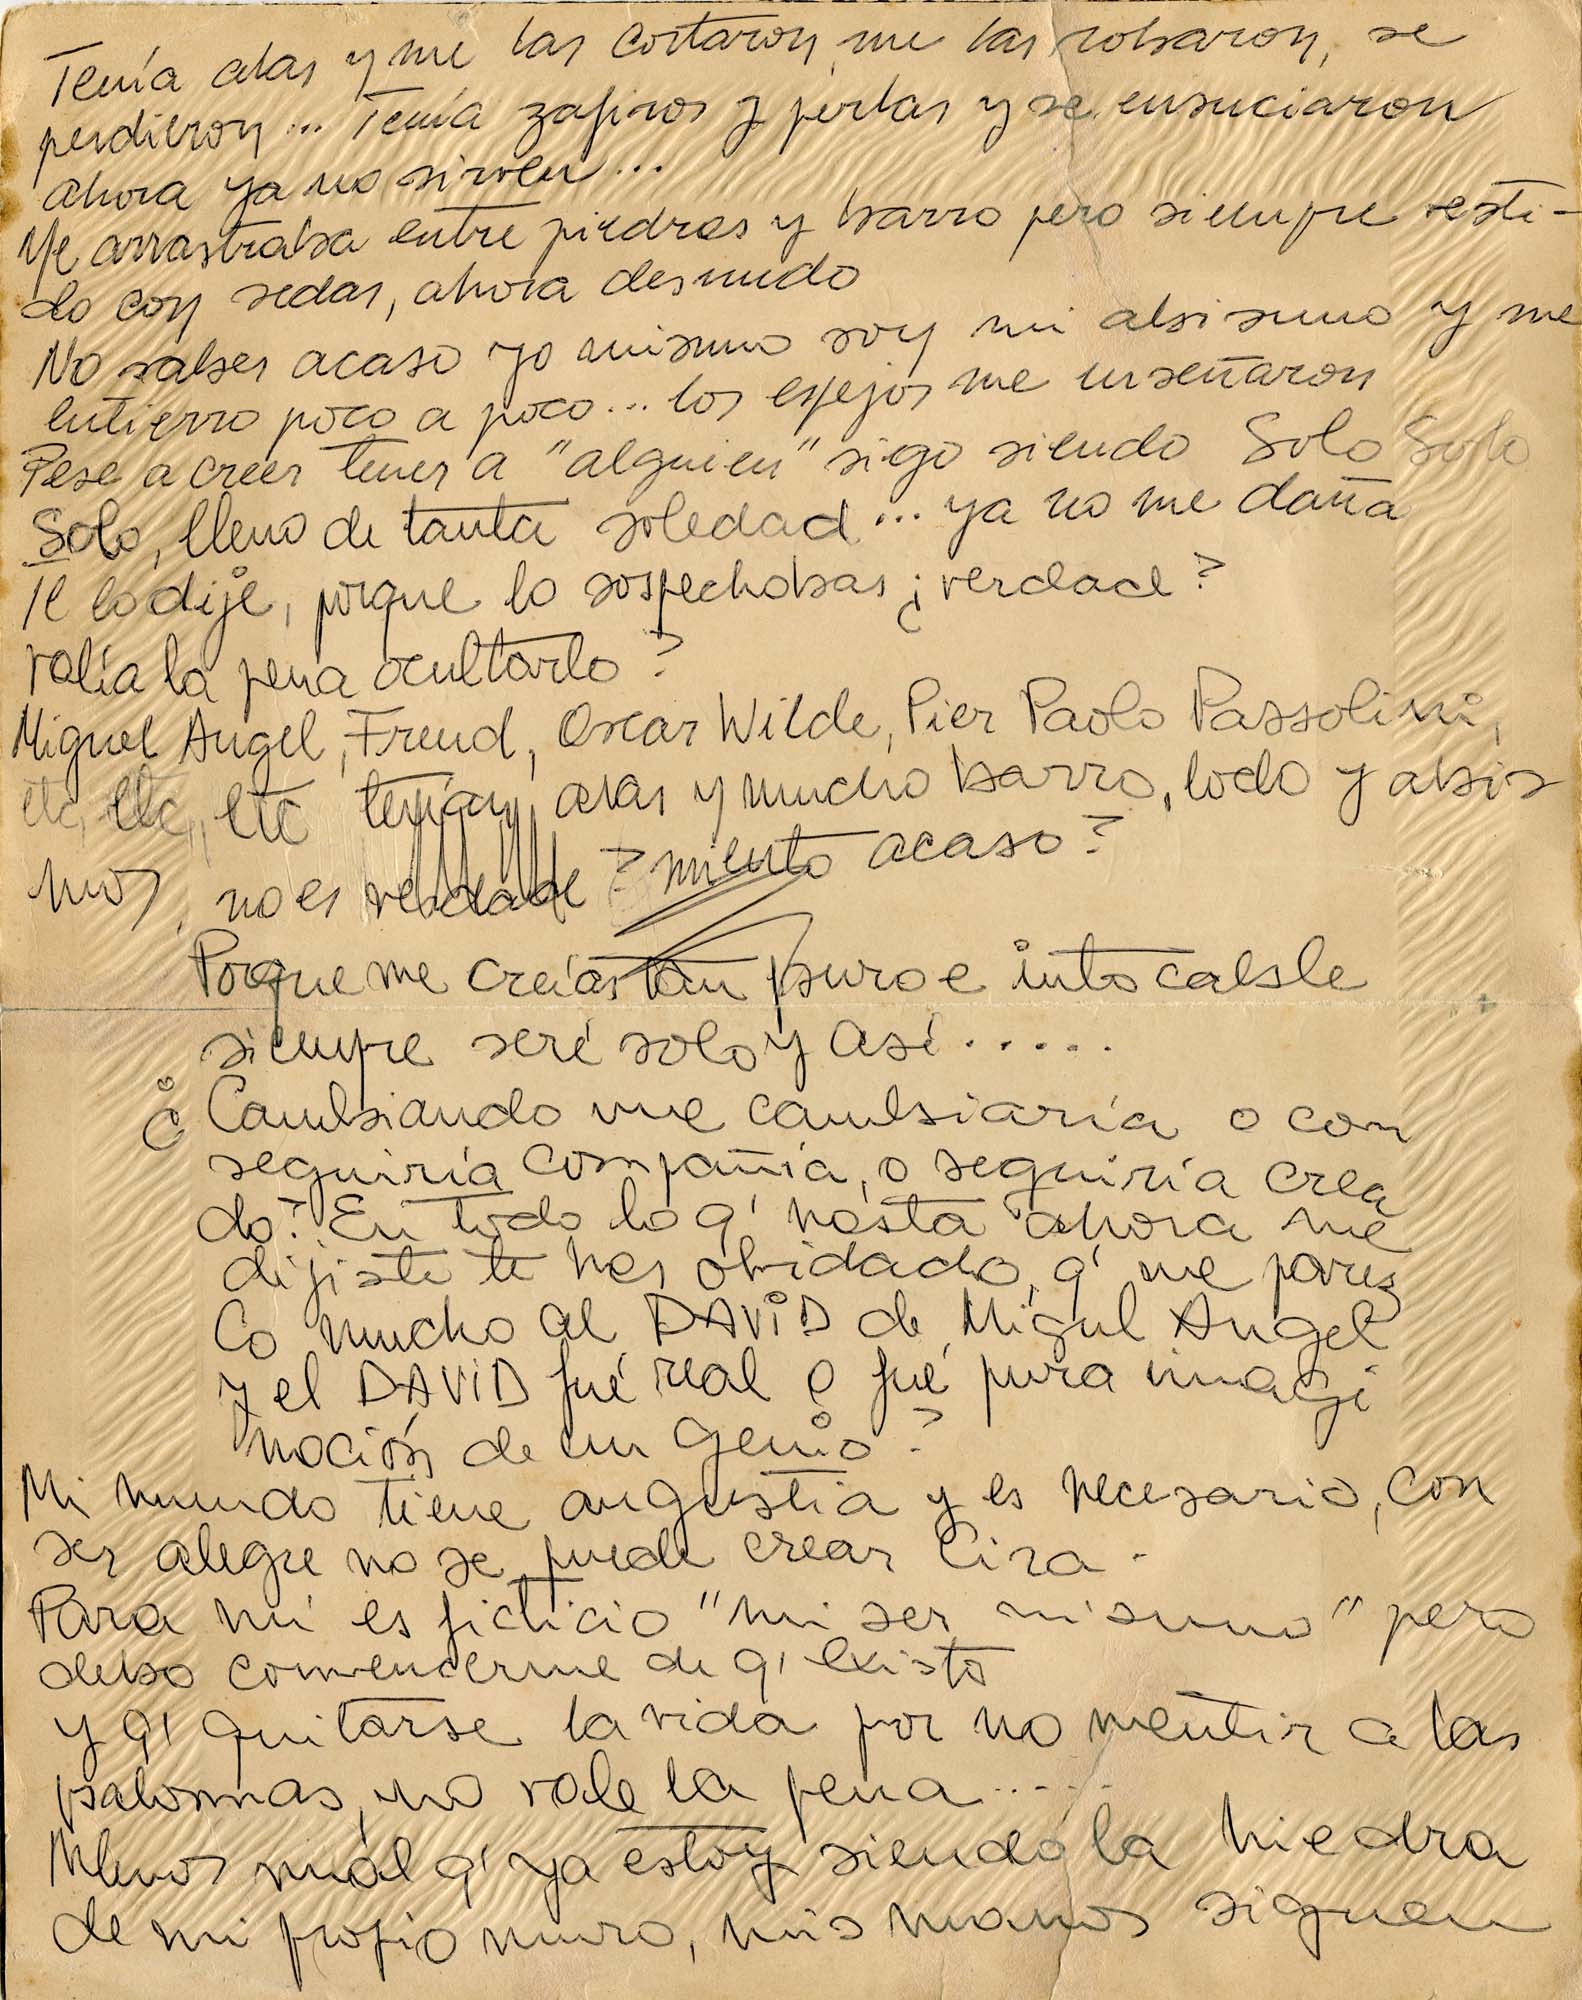 Tenía alas y me las cortaron, me las robaron, se
perdieron... Tenía zafiros y perlas y se ensuciaron
ahora ya no sirven...
Me arrastraba entre piedras y barro pero siempre vesti-
do con sedas, ahora desnudo
No sabes acaso yo mismo soy mi abismo y me
entierro poco a poco... los espejos me enseñaron
Pese a creer tener a "alguien" sigo siendo Solo Solo
Solo, lleno de tanta soledad... ya no me daña
Te lo dije, porque lo sospechabas ¿verdad?
valía la pena ocultarlo?
Miguel Angel, Freud, Oscar Wilde, Pier Paolo Passolini,
etc, etc, etc tenían alas y mucho barro, lodo y abis
mos, no es verdad? miento acaso?
Porque me creías tan puro e intocable
siempre seré solo y así.....
¿ Cambiando me cambiaría o con
seguiría compañía, o seguiría crea
do? En todo lo q' hasta ahora me
dijiste te has olvidado, q' me parez
co mucho al DAViD de Miguel Angel
y el DAViD fué real o fué pura imagi
nación de un genio?
Mi mundo tiene angustia y es necesario, con
ser alegre no se puede crear
Para mí es ficticio "mi ser mismo" pero
debo convencerme de q' existo
y q' quitarse la vida por no mentir a las
palomas, no vale la pena.....
Menos mál q' ya estoy siendo la hiedra
de mi propio muro, mis manos siguen